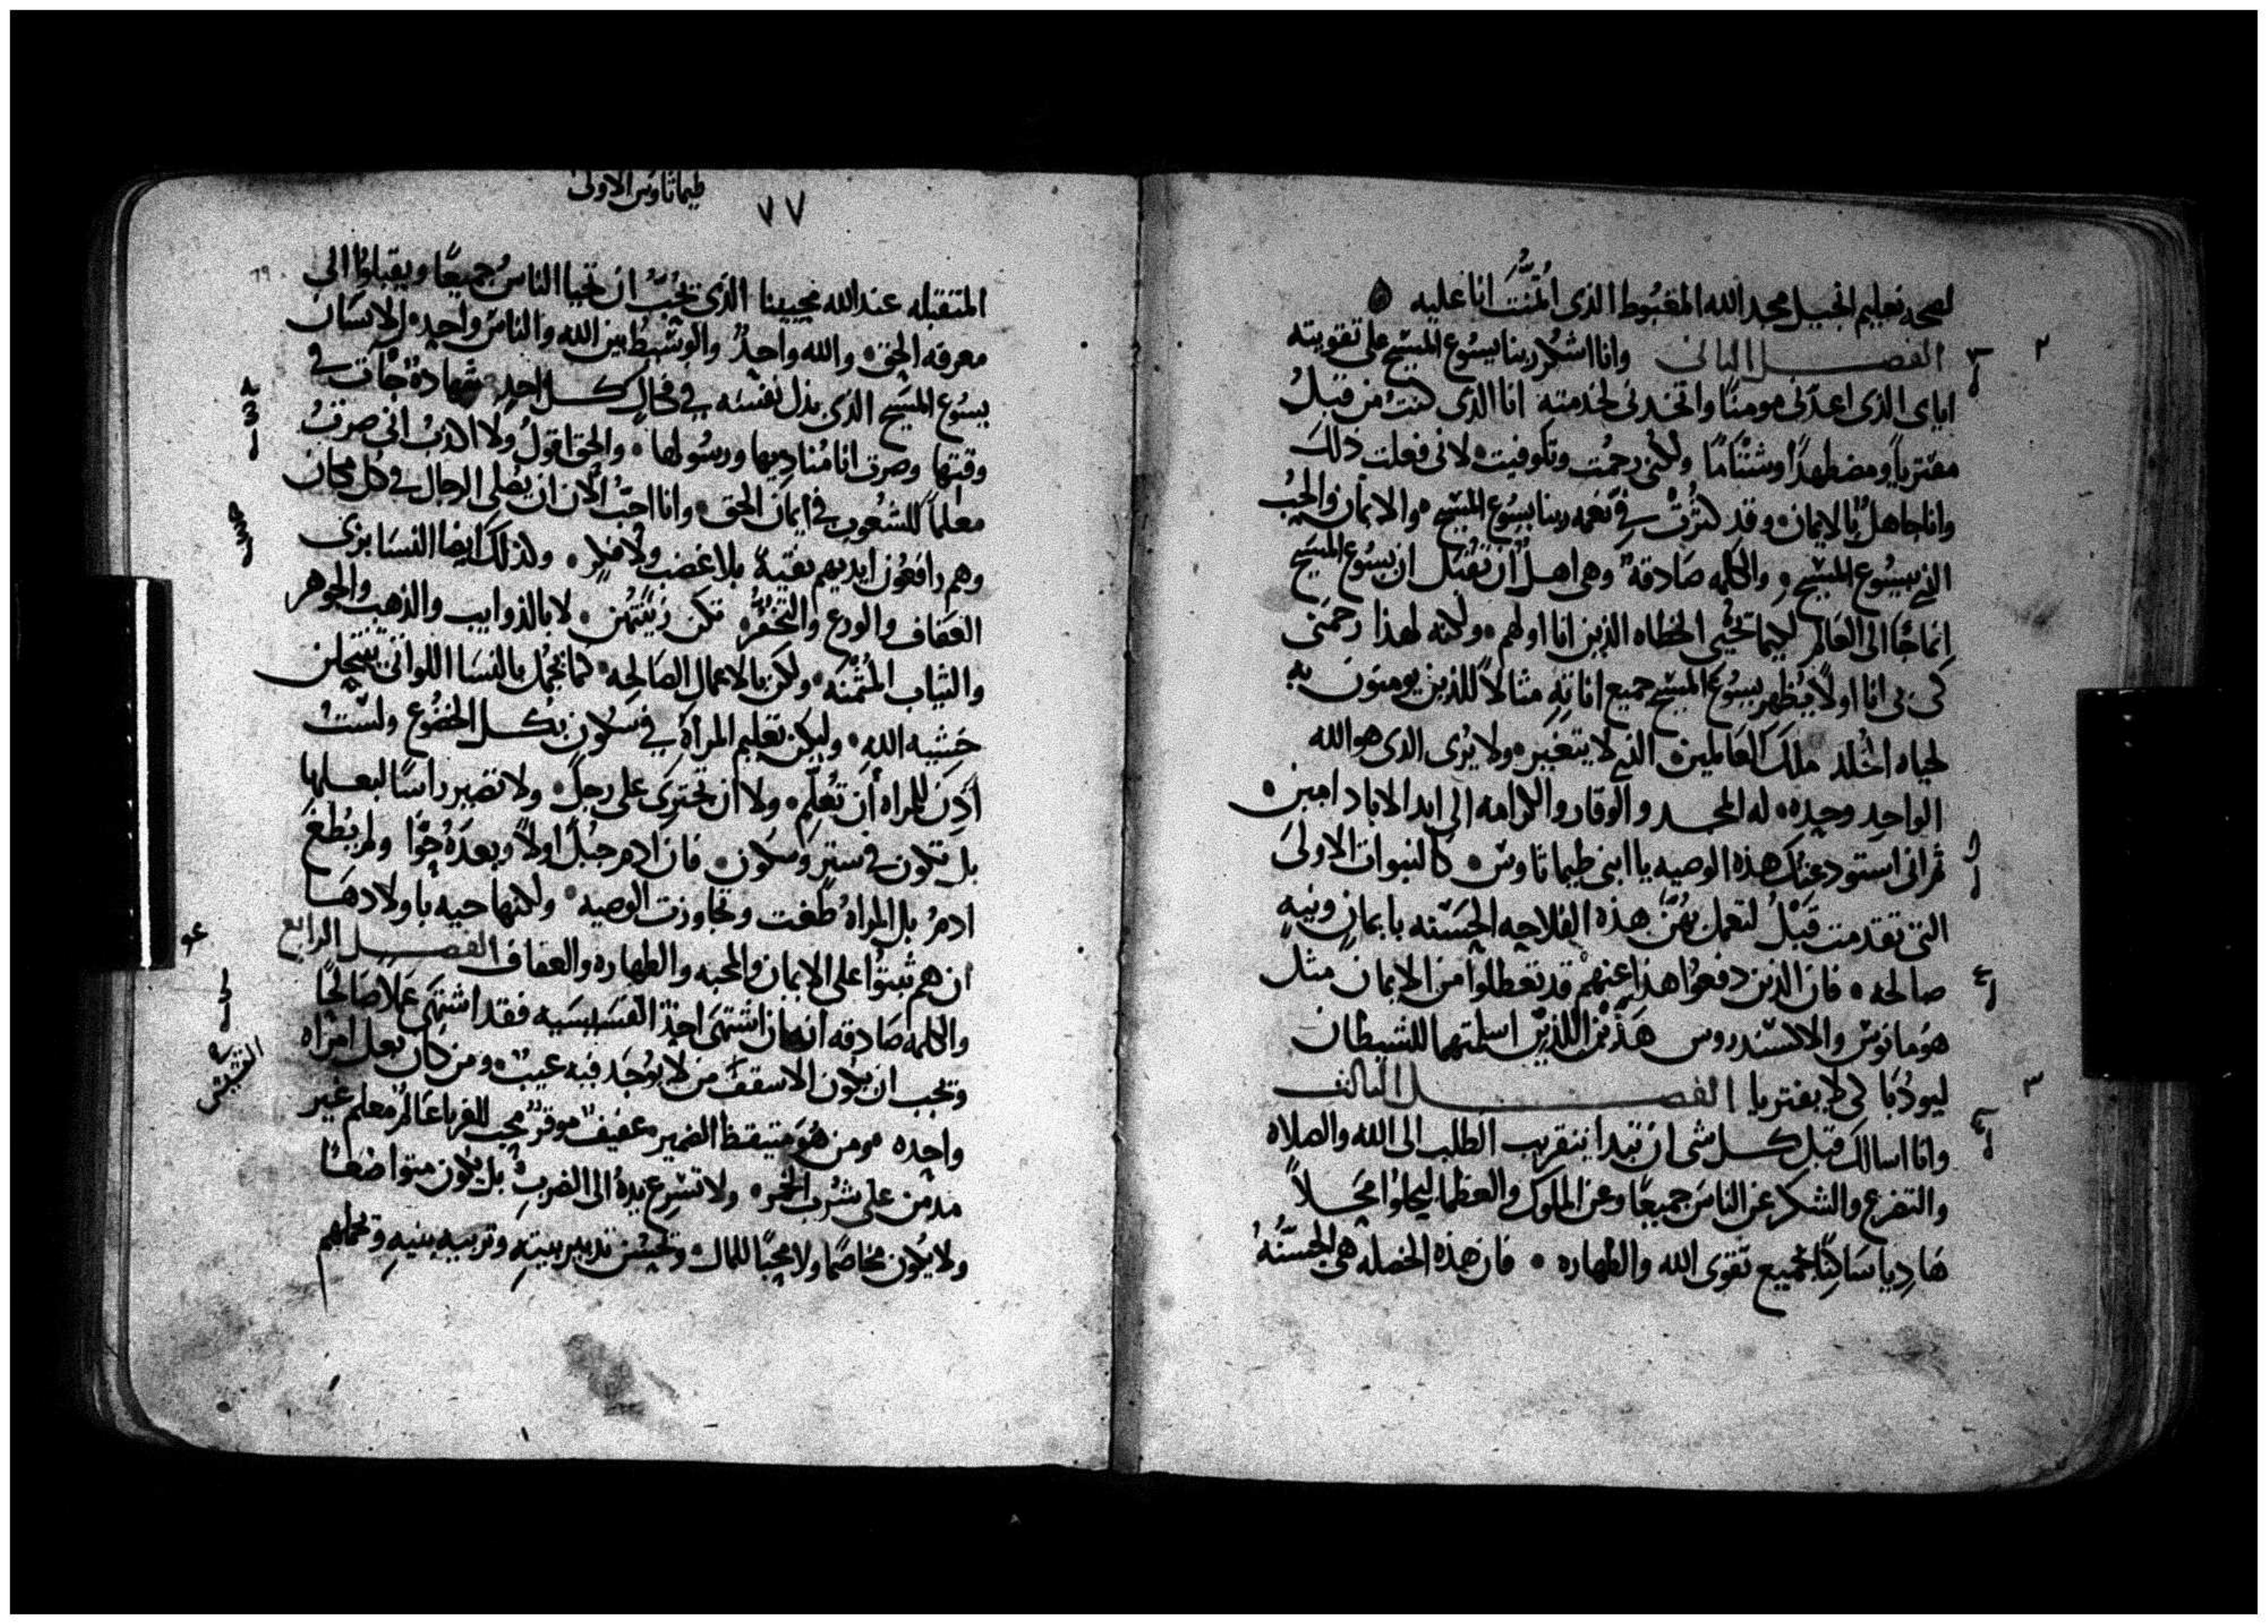 لصحه تعليم انجيل مجد الله المغبوط الذى ائتمنت انا عليه
٢
الفصل الثانى وانا اشكر ربنا يسوع المسيح على تقويته
اياى الذى اعدنى مومنًا واتخدنى لخدمته انا الذى كنتُ من قبلُ
مفتريًا ومضطهدًا وشتّامًا ولكنى رحمت وتكوفيت لانى فعلت ذلك
وانا جاهلٌ بالايمان وقد كثرت فى نعمه ربنا يسوع المسيح والايمان والحب
الذى بيسوع المسيح والكلمه صادقة وهى اهلٌ ان تقبل ان يسوع المسيح
انما جا الى العالم ليما تحيى الخطاه الذين انا اولهم ولكنه لهذا رحمنى
كى بى انا اولًا يُظهر يسوع المسيح جميع اناته مثالاً للذين يومنون به
لحياه الخلد ملك العالمين الذى لا يتغير ولا يُرى الدى هو الله
الواحد وحده له المجد والوقار والكرامه الى ابد الاباد امين
ثم انى استودعتك هذه الوصيه يا ابنى طيماثاوس كالنبوات الاولى
التى تقدمت قبلُ لتعمل بهنّ هذه الفلاحه الحسنه بايمان ونيه
صالحه فان الذين دفعوا هذا عنهم قد تعطلوا من الايمان مثل
هومانوس والاكسندروس هذين اللذين اسلمتهما للشيطان
ليودبا كى لا يفتريا الفصل الثالث
٣
وانا اسالك قبل كل شى ان تبدا بتقريب الطلب الى الله والصلاه
والتضرع والشكر عن الناس جميعًا وعن الملوك والعظما ليحلوا محلاً
هاديا ساكنًا بجميع تقوى الله والطهاره فان هذه الخصله هى الحسنة
طيماثاوس الاولى
٧٧
المتقبله عند الله محيينا الذى يحب ان تحيا الناس جميعًا ويقبلوا الى
معرفه الحق والله واحدٌ والوسيط بين الله والناس واحد الانسان
يسوع المسيح الذى بذل نفسه فى فكاك كل احدٍ شهادة جات فى
وقتها وصرت انا مناديها ورسولها والحق اقول ولا اكذبُ انى صرتُ
معلماً للشعوب فى ايمان الحق وانا احبّ الآن ان يصلى الرجال فى كل مكان
وهم رافعون ايديهم نقيةً بلا غضب ولا فكر ولذلك ايضا النسا بزى
العفاف والورع والتخفر تكن زينتهن لا بالذوايب والذهب والجوهر
والثياب المثمنه ولكن بالاعمال الصالحه كما يجمل بالنسا اللواتى ينتحلن
خشيه الله وليكن تعليم المراة فى سكون بكل الخضوع ولستُ
أذِن للمراه أن تُعلّم ولا ان تجترى على رجل ولا تصير راسًا لبعلها
بل تكون فى سترٍ وسكون فان ادم جُبل اولاً وبعده حوا ولم يطغ
ادم بل المراه طغت وتجاوزت الوصيه ولكنها حيه باولادها
ان هم ثبتوا على الايمان والمحبه والطهاره والعفاف الفصل الرابع
والكلمه صادقه انه ان اشتهى احد القسيسيه فقد اشتهى عملاً صالحًا
القسيس
وتجب ان يكون الاسقف من لا يوجد فيه عيبٌ ومن كان بعل امراه
واحده ومن هو متيقظ الضمير عفيف موقر محب الغربا عالم معلم غير
مدمن على شرب الخمر ولا تسرع يده الى الضرب بل يكون متواضعًا
ولا يكون مخاصمًا ولا محبًا للمال وتحسن تدبير بيته وتربيه بنيه وتحملهم